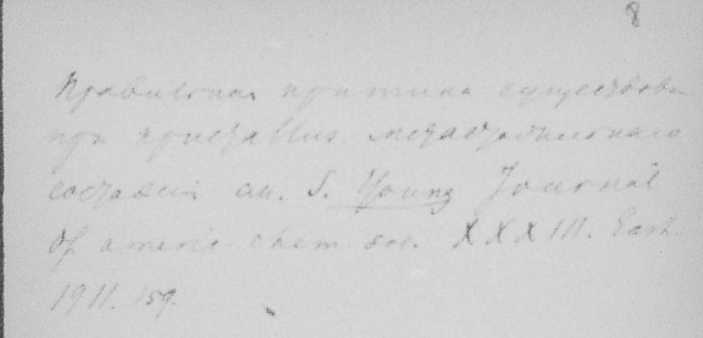 8
Правильная причина существова-
при кристаллиз. метастабильнаго
состоянія см. S. Young Journal
of americ. chem. soc. XXXIII. East.
1911. 159.